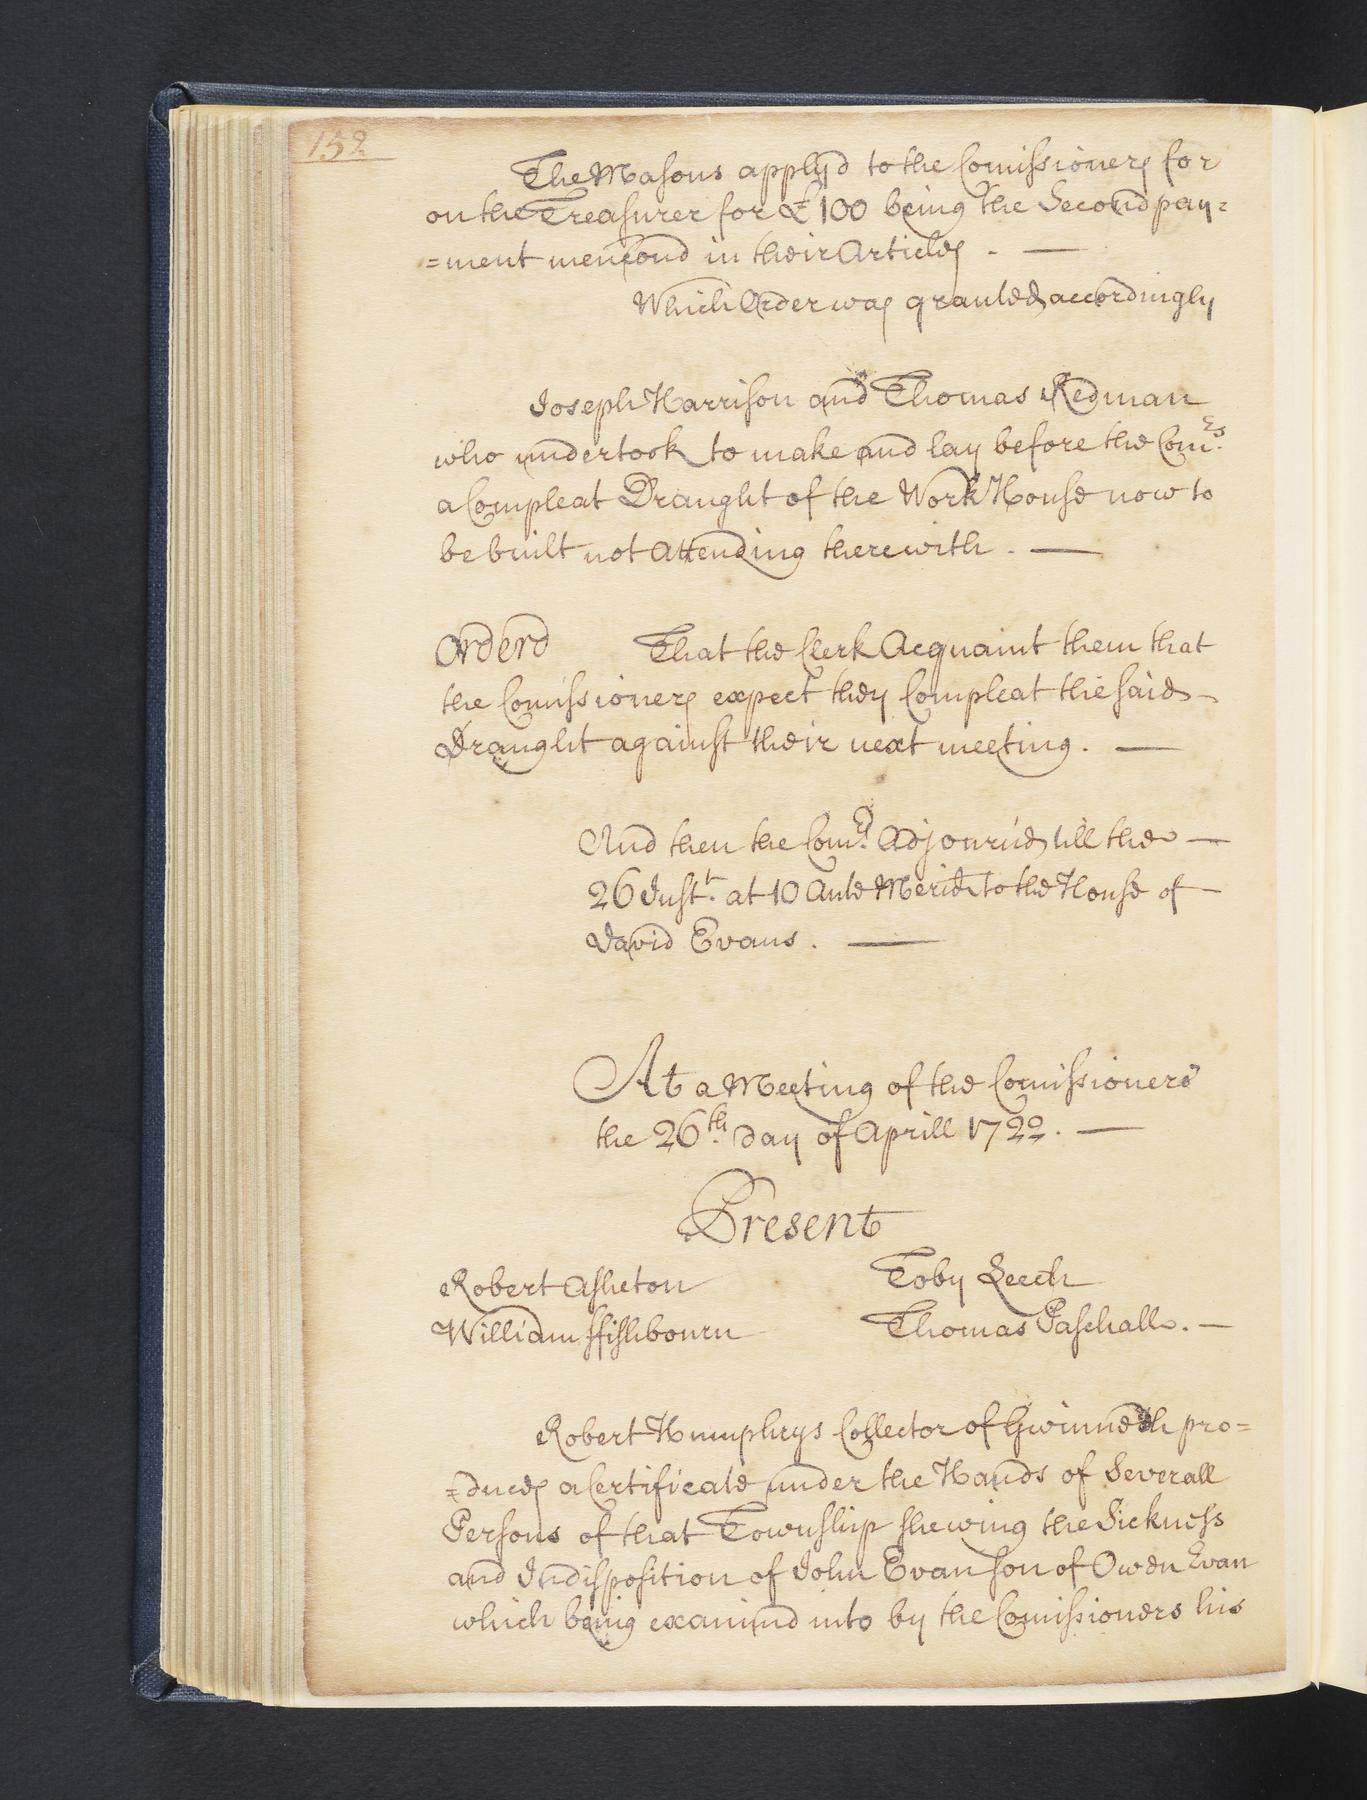 152
The Masons applyd to the Comissioners for
on the Treasurer for £100 being the Second pay=
=ment mencond in their Articles . —
Which Order was granted accordingly
Joseph Harrison and Thomas Redman
who undertook to make and lay before the Com.rs
a Compleat Draught of the Work House now to
be built not Attending therewith . —
Orderd That the Clerk Acquaint them that
the Comissioners expect they Compleat the said –
Draught against their next meeting . —
And then the Com.rs Adjourn'd till the —
26 Inst.t at 10 Ante Merid to the House of —
David Evans . —
At a Meeting of the Comissioners
the 26.th day of Aprill 1722 . —
Present
Robert Asheton Toby Leech
William ffishbourn Thomas Paschall . —
Robert Humphrys Collector of Gwinnedh pro=
=duces a Certificate under the Hands of Severall
Persons of that Township shewing the Sickness
and Indisposition of John Evan son of Owen Evan
which being examind into by the Comissioners his